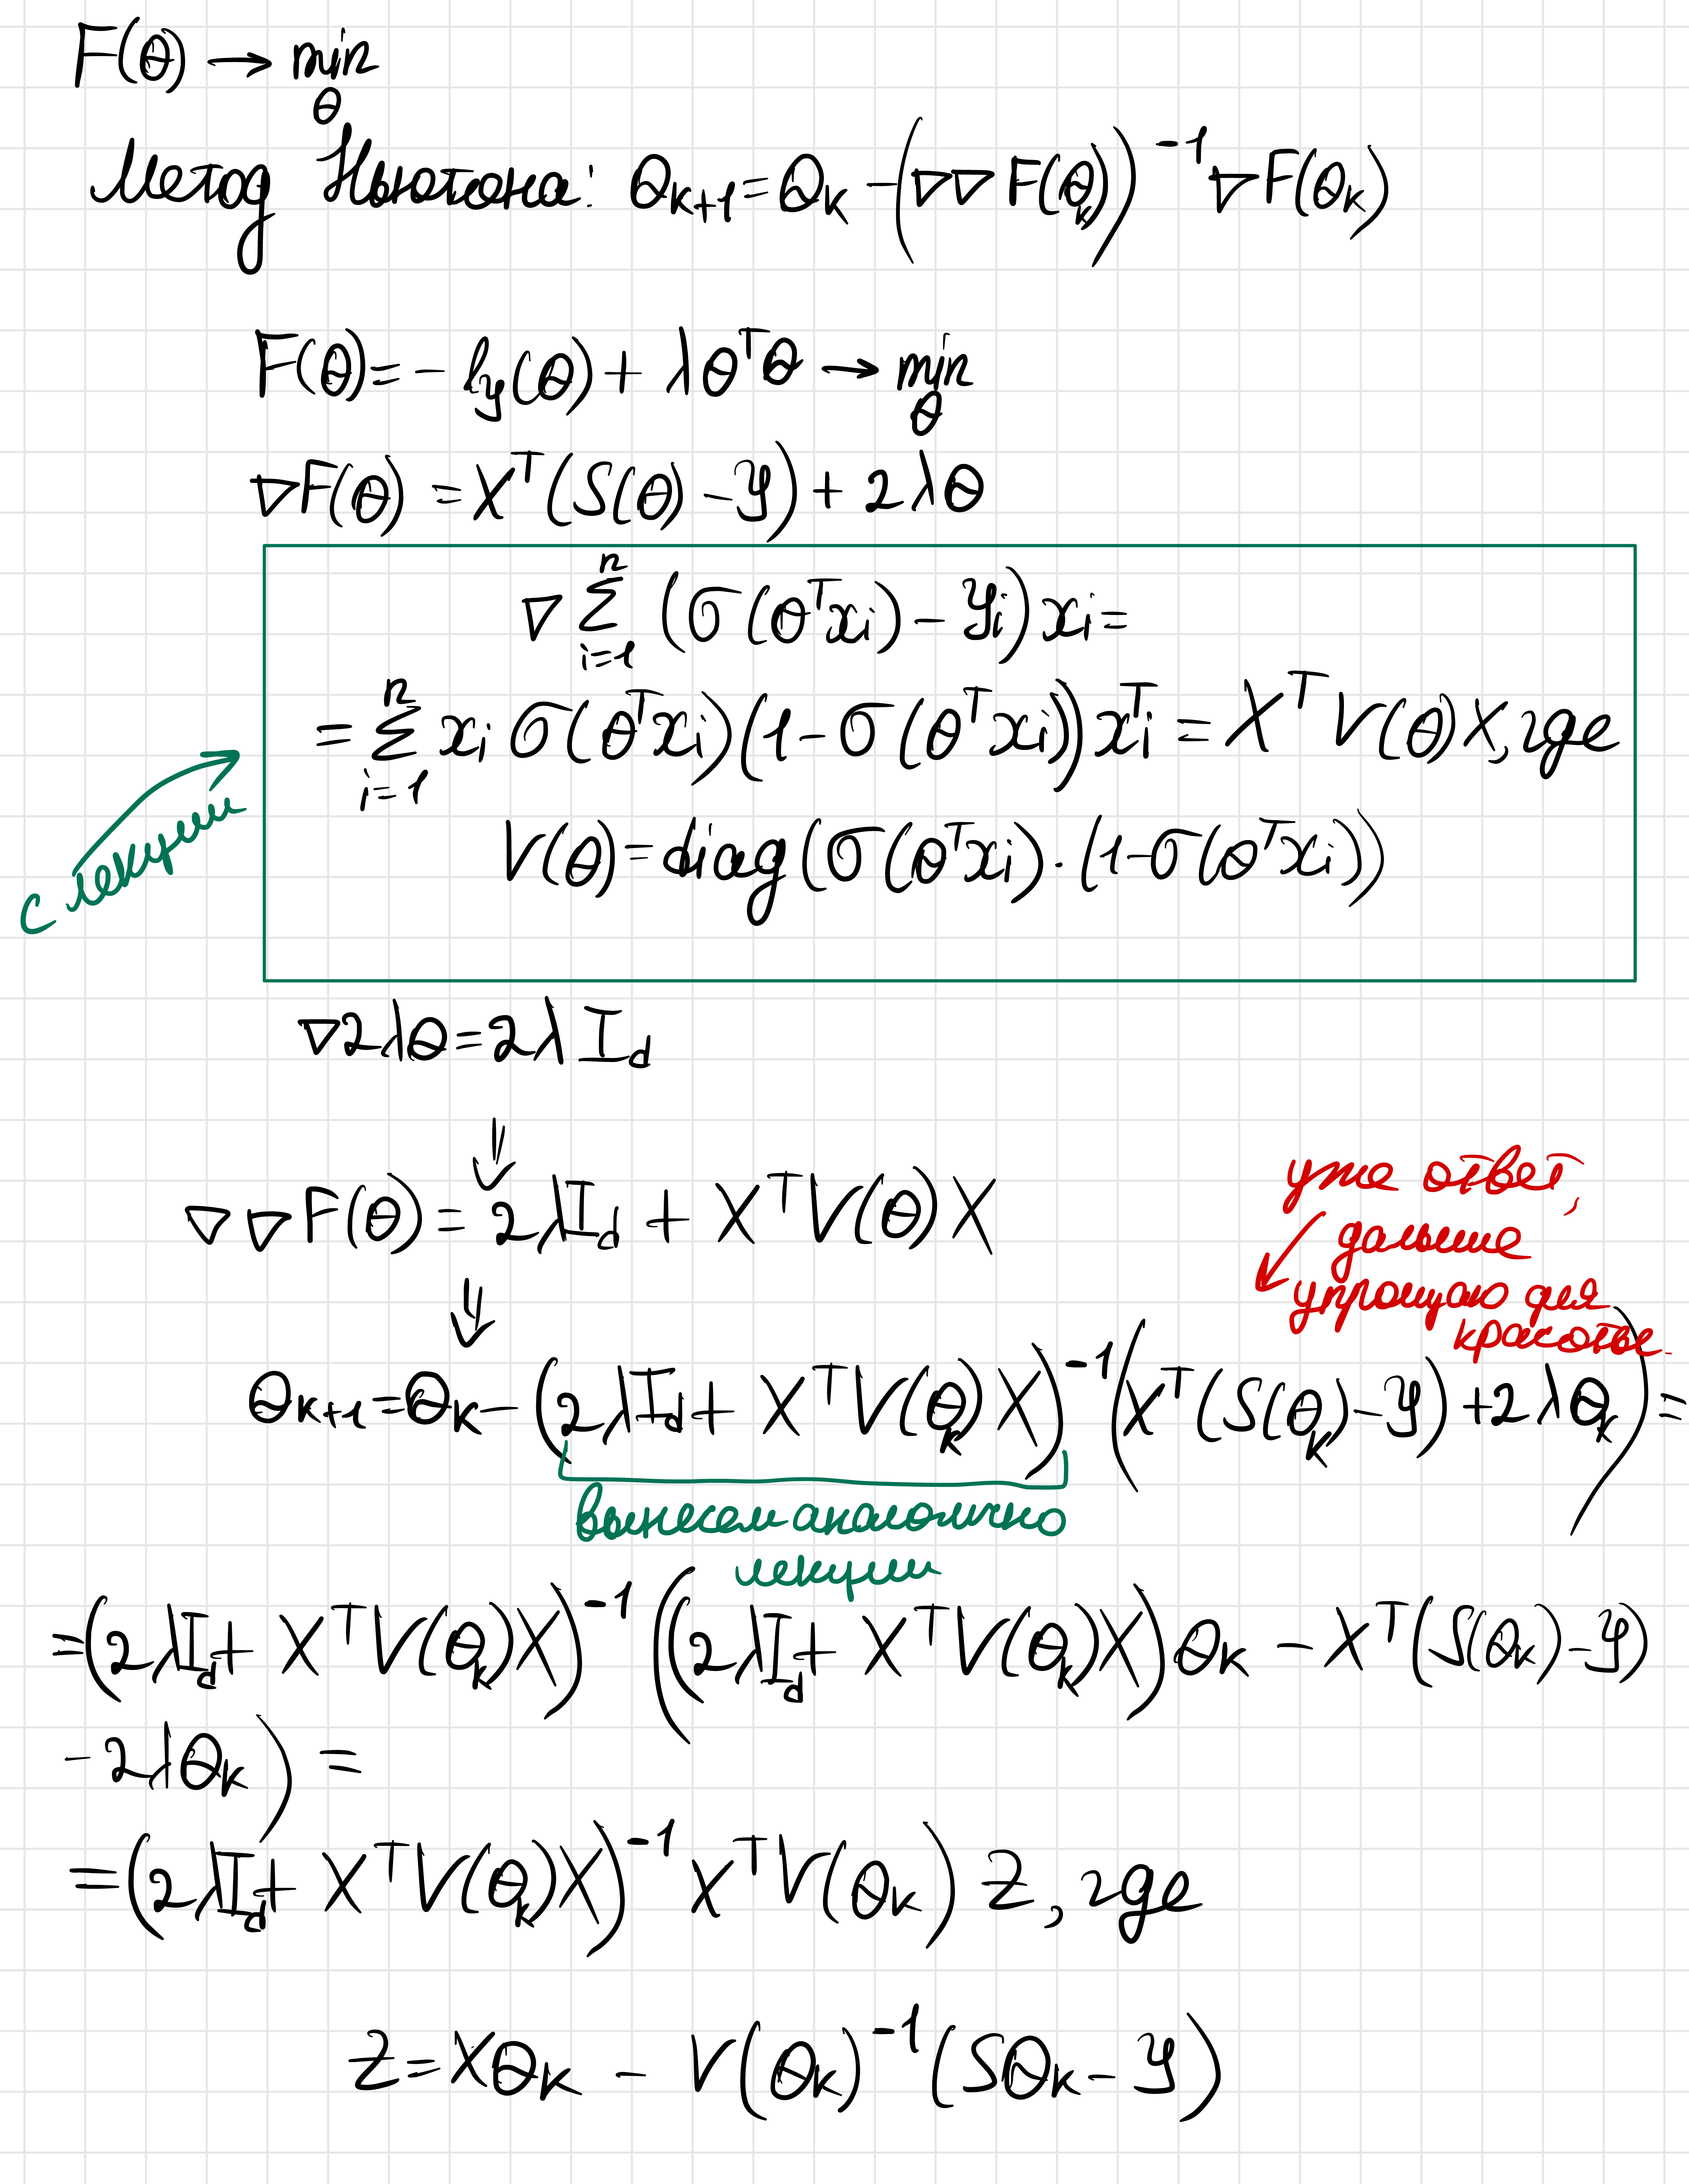 F(θ) → min
θ
Метод Ньютона: θₖ₊₁ = θₖ − (∇∇F(θₖ))⁻¹ ∇F(θₖ)
F(θ) = − l_y(θ) + λθᵀθ → min
θ
∇F(θ) = Xᵀ(S(θ) − Y) + 2λθ
∇ Σᵢ₌₁ⁿ (σ(θᵀxᵢ) − Yᵢ) xᵢ =
= Σᵢ₌₁ⁿ xᵢ σ(θᵀxᵢ)(1 − σ(θᵀxᵢ)) xᵢᵀ = XᵀV(θ)X, где
с лекции
V(θ) = diag(σ(θᵀxᵢ) · (1 − σ(θᵀxᵢ)))
∇2λθ = 2λI_d
⇓
∇∇F(θ) = 2λI_d + XᵀV(θ)X
уже ответ,
дальше
упрощаю для
красоты.
⇓
θₖ₊₁ = θₖ − (2λI_d + XᵀV(θₖ)X)⁻¹ (Xᵀ(S(θₖ) − Y) + 2λθₖ) =
вынесем аналогично
лекции
= (2λI_d + XᵀV(θₖ)X)⁻¹ ((2λI_d + XᵀV(θₖ)X)θₖ − Xᵀ(S(θₖ) − Y)
− 2λθₖ) =
= (2λI_d + XᵀV(θₖ)X)⁻¹ XᵀV(θₖ) Z, где
Z = Xθₖ − V(θₖ)⁻¹(Sθₖ − Y)